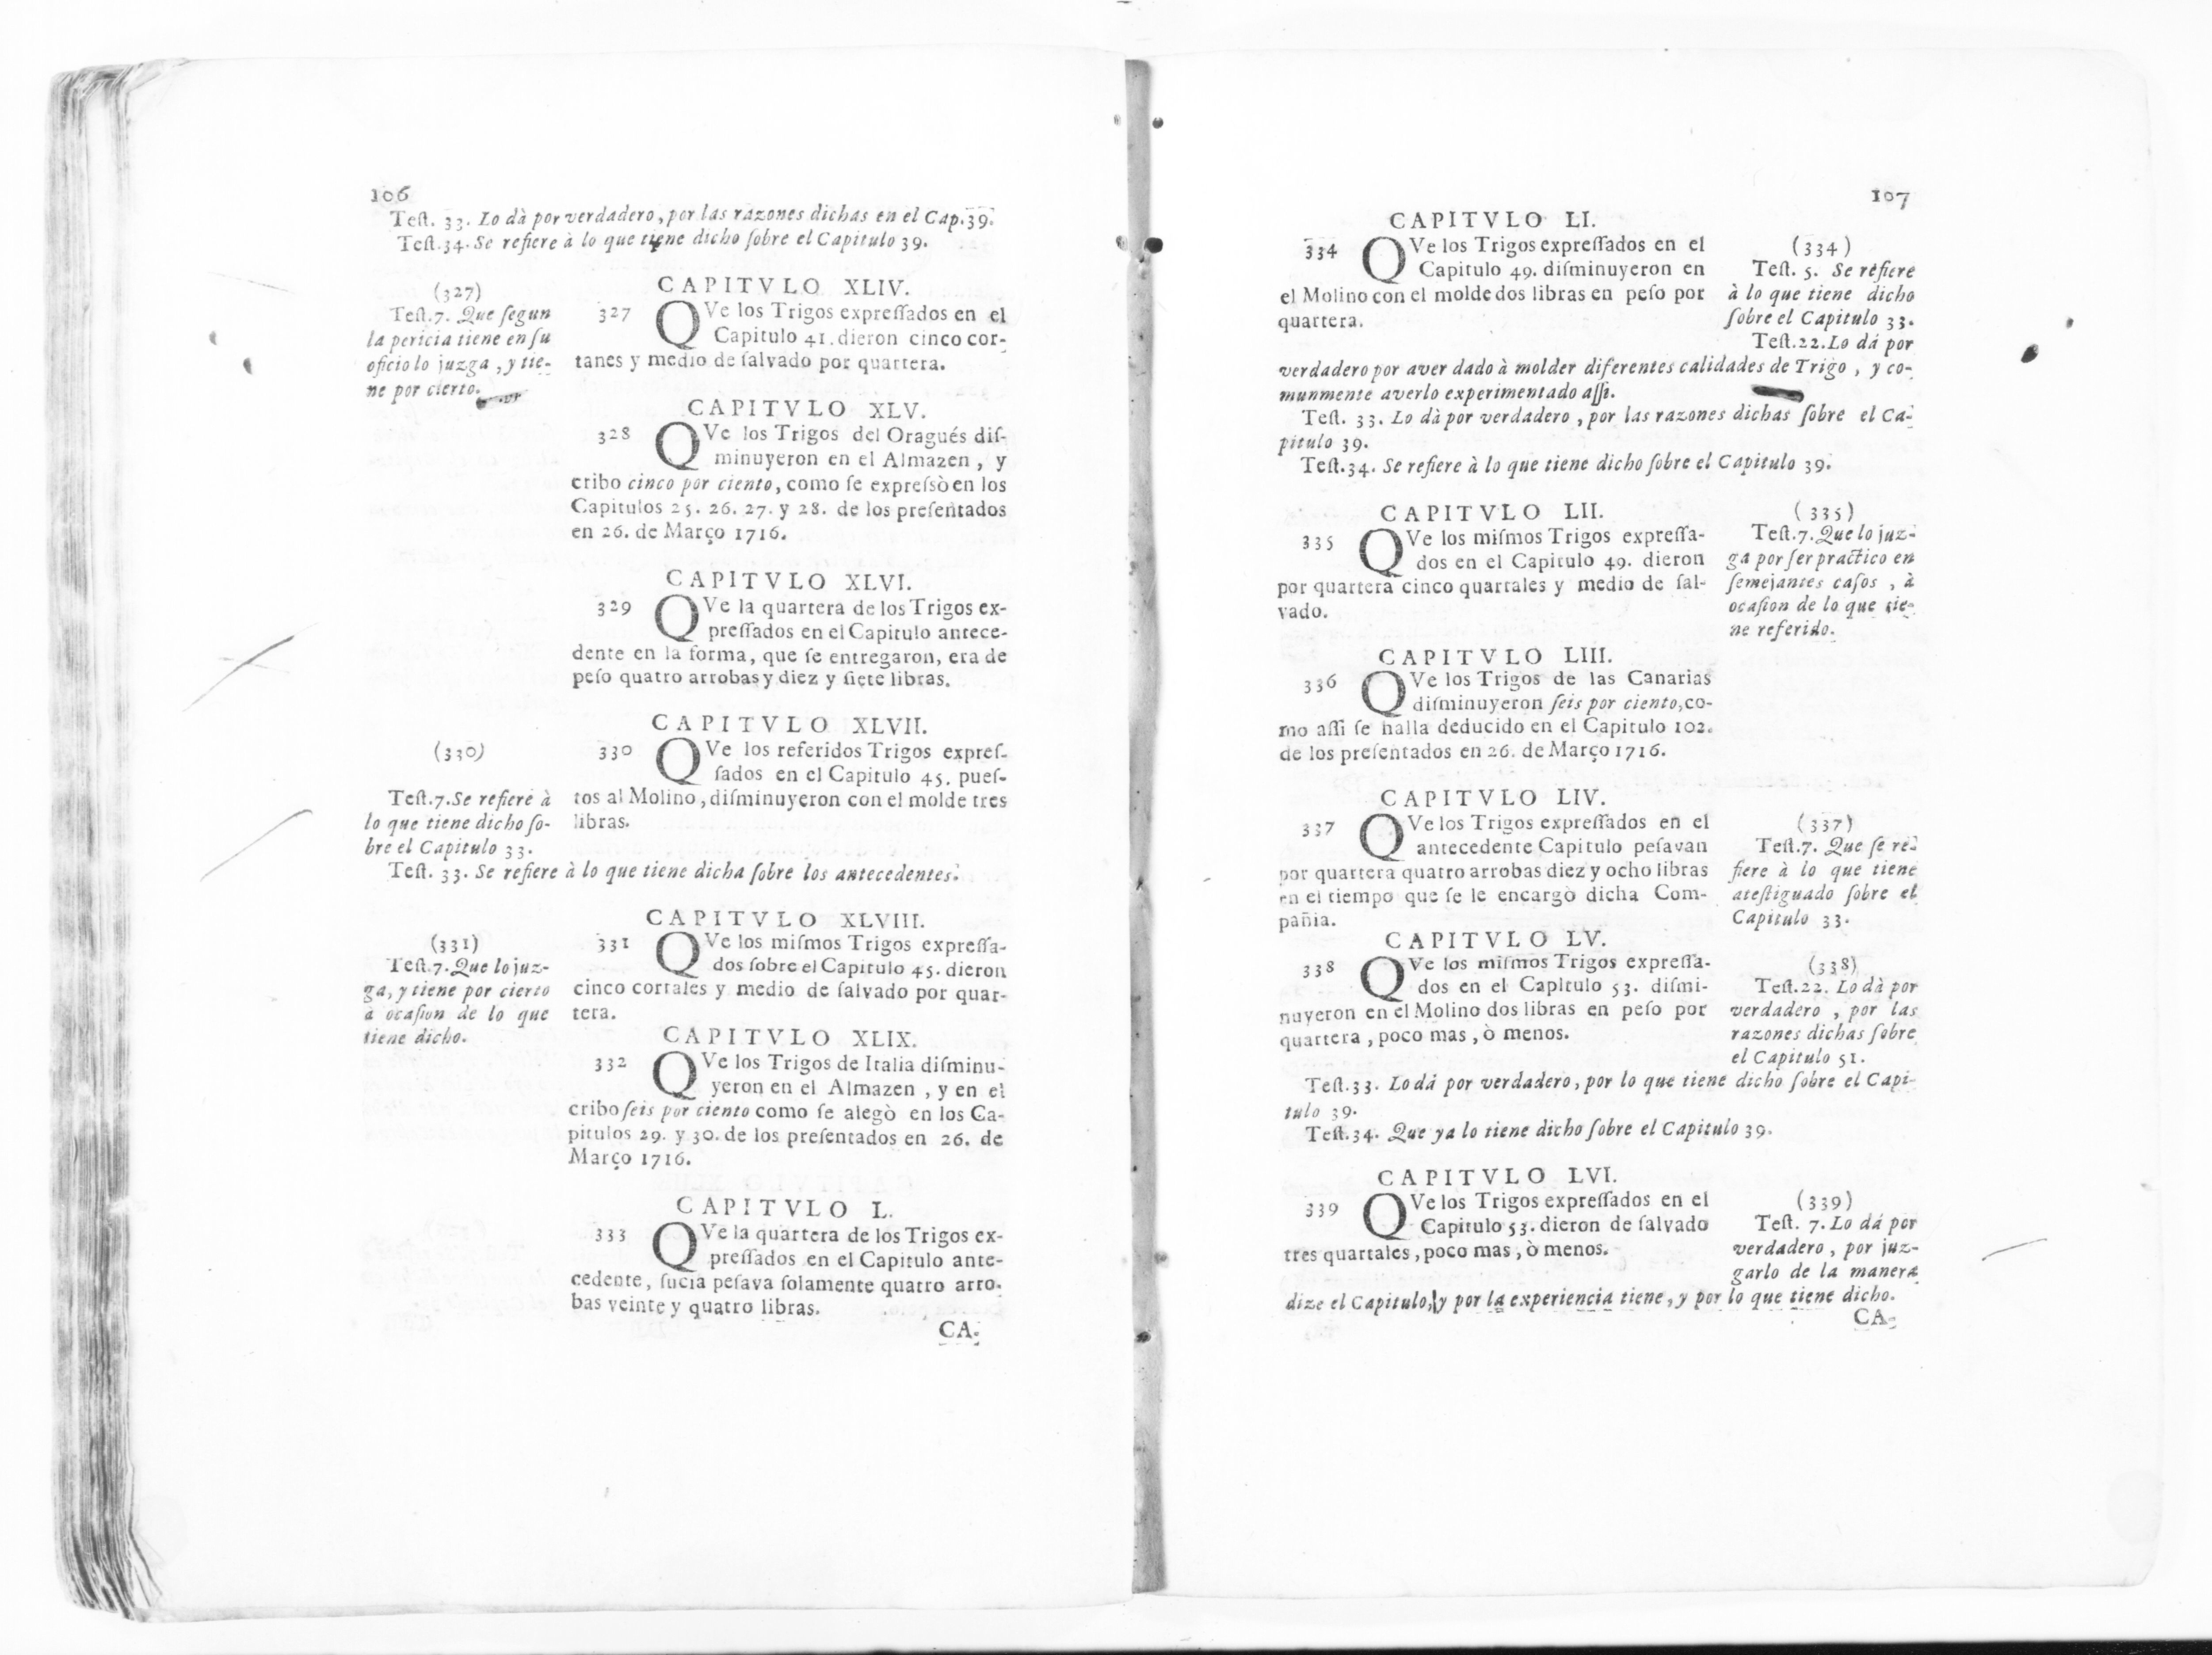 106
Teſt. 33. Lo dà por verdadero, por las razones dichas en el Cap.39.
Teſt.34. Se refiere à lo que tiene dicho ſobre el Capitulo 39.
CAPITVLO XLIV.
(327)
Teſt.7. Que ſegun
la pericia tiene en ſu
oficio lo juzga, y tie-
ne por cierto.
327 QVe los Trigos expreſſados en el
Capitulo 41. dieron cinco cor-
tanes y medio de ſalvado por quartera.
CAPITVLO XLV.
328 QVe los Trigos del Oragués diſ-
minuyeron en el Almazen, y
cribo cinco por ciento, como ſe expreſsò en los
Capitulos 25. 26. 27. y 28. de los preſentados
en 26. de Março 1716.
CAPITVLO XLVI.
329 QVe la quartera de los Trigos ex-
preſſados en el Capitulo antece-
dente en la forma, que ſe entregaron, era de
peſo quatro arrobas y diez y ſiete libras.
CAPITVLO XLVII.
(330)
Teſt.7. Se refiere à
lo que tiene dicho ſo-
bre el Capitulo 33.
330 QVe los referidos Trigos expreſ-
ſados en el Capitulo 45. pueſ-
tos al Molino, diſminuyeron con el molde tres
libras.
Teſt. 33. Se refiere à lo que tiene dicha ſobre los antecedentes.
CAPITVLO XLVIII.
(331)
Teſt.7. Que lo juz-
ga, y tiene por cierto
à ocaſion de lo que
tiene dicho.
331 QVe los miſmos Trigos expreſſa-
dos ſobre el Capitulo 45. dieron
cinco cortales y medio de ſalvado por quar-
tera.
CAPITVLO XLIX.
332 QVe los Trigos de Italia diſminu-
yeron en el Almazen, y en el
cribo ſeis por ciento como ſe alegò en los Ca-
pitulos 29. y 30. de los preſentados en 26. de
Março 1716.
CAPITVLO L.
333 QVe la quartera de los Trigos ex-
preſſados en el Capitulo ante-
cedente, ſucia peſava ſolamente quatro arro-
bas veinte y quatro libras.
CA-
107
CAPITVLO LI.
334 QVe los Trigos expreſſados en el
Capitulo 49. diſminuyeron en
el Molino con el molde dos libras en peſo por
quartera.
(334)
Teſt. 5. Se refiere
à lo que tiene dicho
ſobre el Capitulo 33.
Teſt.22. Lo dá por
verdadero por aver dado à molder diferentes calidades de Trigo, y co-
munmente averlo experimentado aſſi.
Teſt. 33. Lo dà por verdadero, por las razones dichas ſobre el Ca-
pitulo 39.
Teſt.34. Se refiere à lo que tiene dicho ſobre el Capitulo 39.
CAPITVLO LII.
335 QVe los miſmos Trigos expreſſa-
dos en el Capitulo 49. dieron
por quartera cinco quartales y medio de ſal-
vado.
(335)
Teſt.7. Que lo juz-
ga por ſer practico en
ſemejantes caſos, à
ocaſion de lo que tie-
ne referido.
CAPITVLO LIII.
336 QVe los Trigos de las Canarias
diſminuyeron ſeis por ciento, co-
mo aſſi ſe halla deducido en el Capitulo 102.
de los preſentados en 26. de Março 1716.
CAPITVLO LIV.
337 QVe los Trigos expreſſados en el
antecedente Capitulo peſavan
por quartera quatro arrobas diez y ocho libras
en el tiempo que ſe le encargò dicha Com-
pañia.
(337)
Teſt.7. Que ſe re-
fiere à lo que tiene
ateſtiguado ſobre el
Capitulo 33.
CAPITVLO LV.
338 QVe los miſmos Trigos expreſſa-
dos en el Capitulo 53. diſmi-
nuyeron en el Molino dos libras en peſo por
quartera, poco mas, ò menos.
(338)
Teſt.22. Lo dà por
verdadero, por las
razones dichas ſobre
el Capitulo 51.
Teſt.33. Lo dá por verdadero, por lo que tiene dicho ſobre el Capi-
tulo 39.
Teſt.34. Que ya lo tiene dicho ſobre el Capitulo 39.
CAPITVLO LVI.
339 QVe los Trigos expreſſados en el
Capitulo 53. dieron de ſalvado
tres quartales, poco mas, ò menos.
(339)
Teſt. 7. Lo dá por
verdadero, por juz-
garlo de la manera
dize el Capitulo, y por la experiencia tiene, y por lo que tiene dicho.
CA-